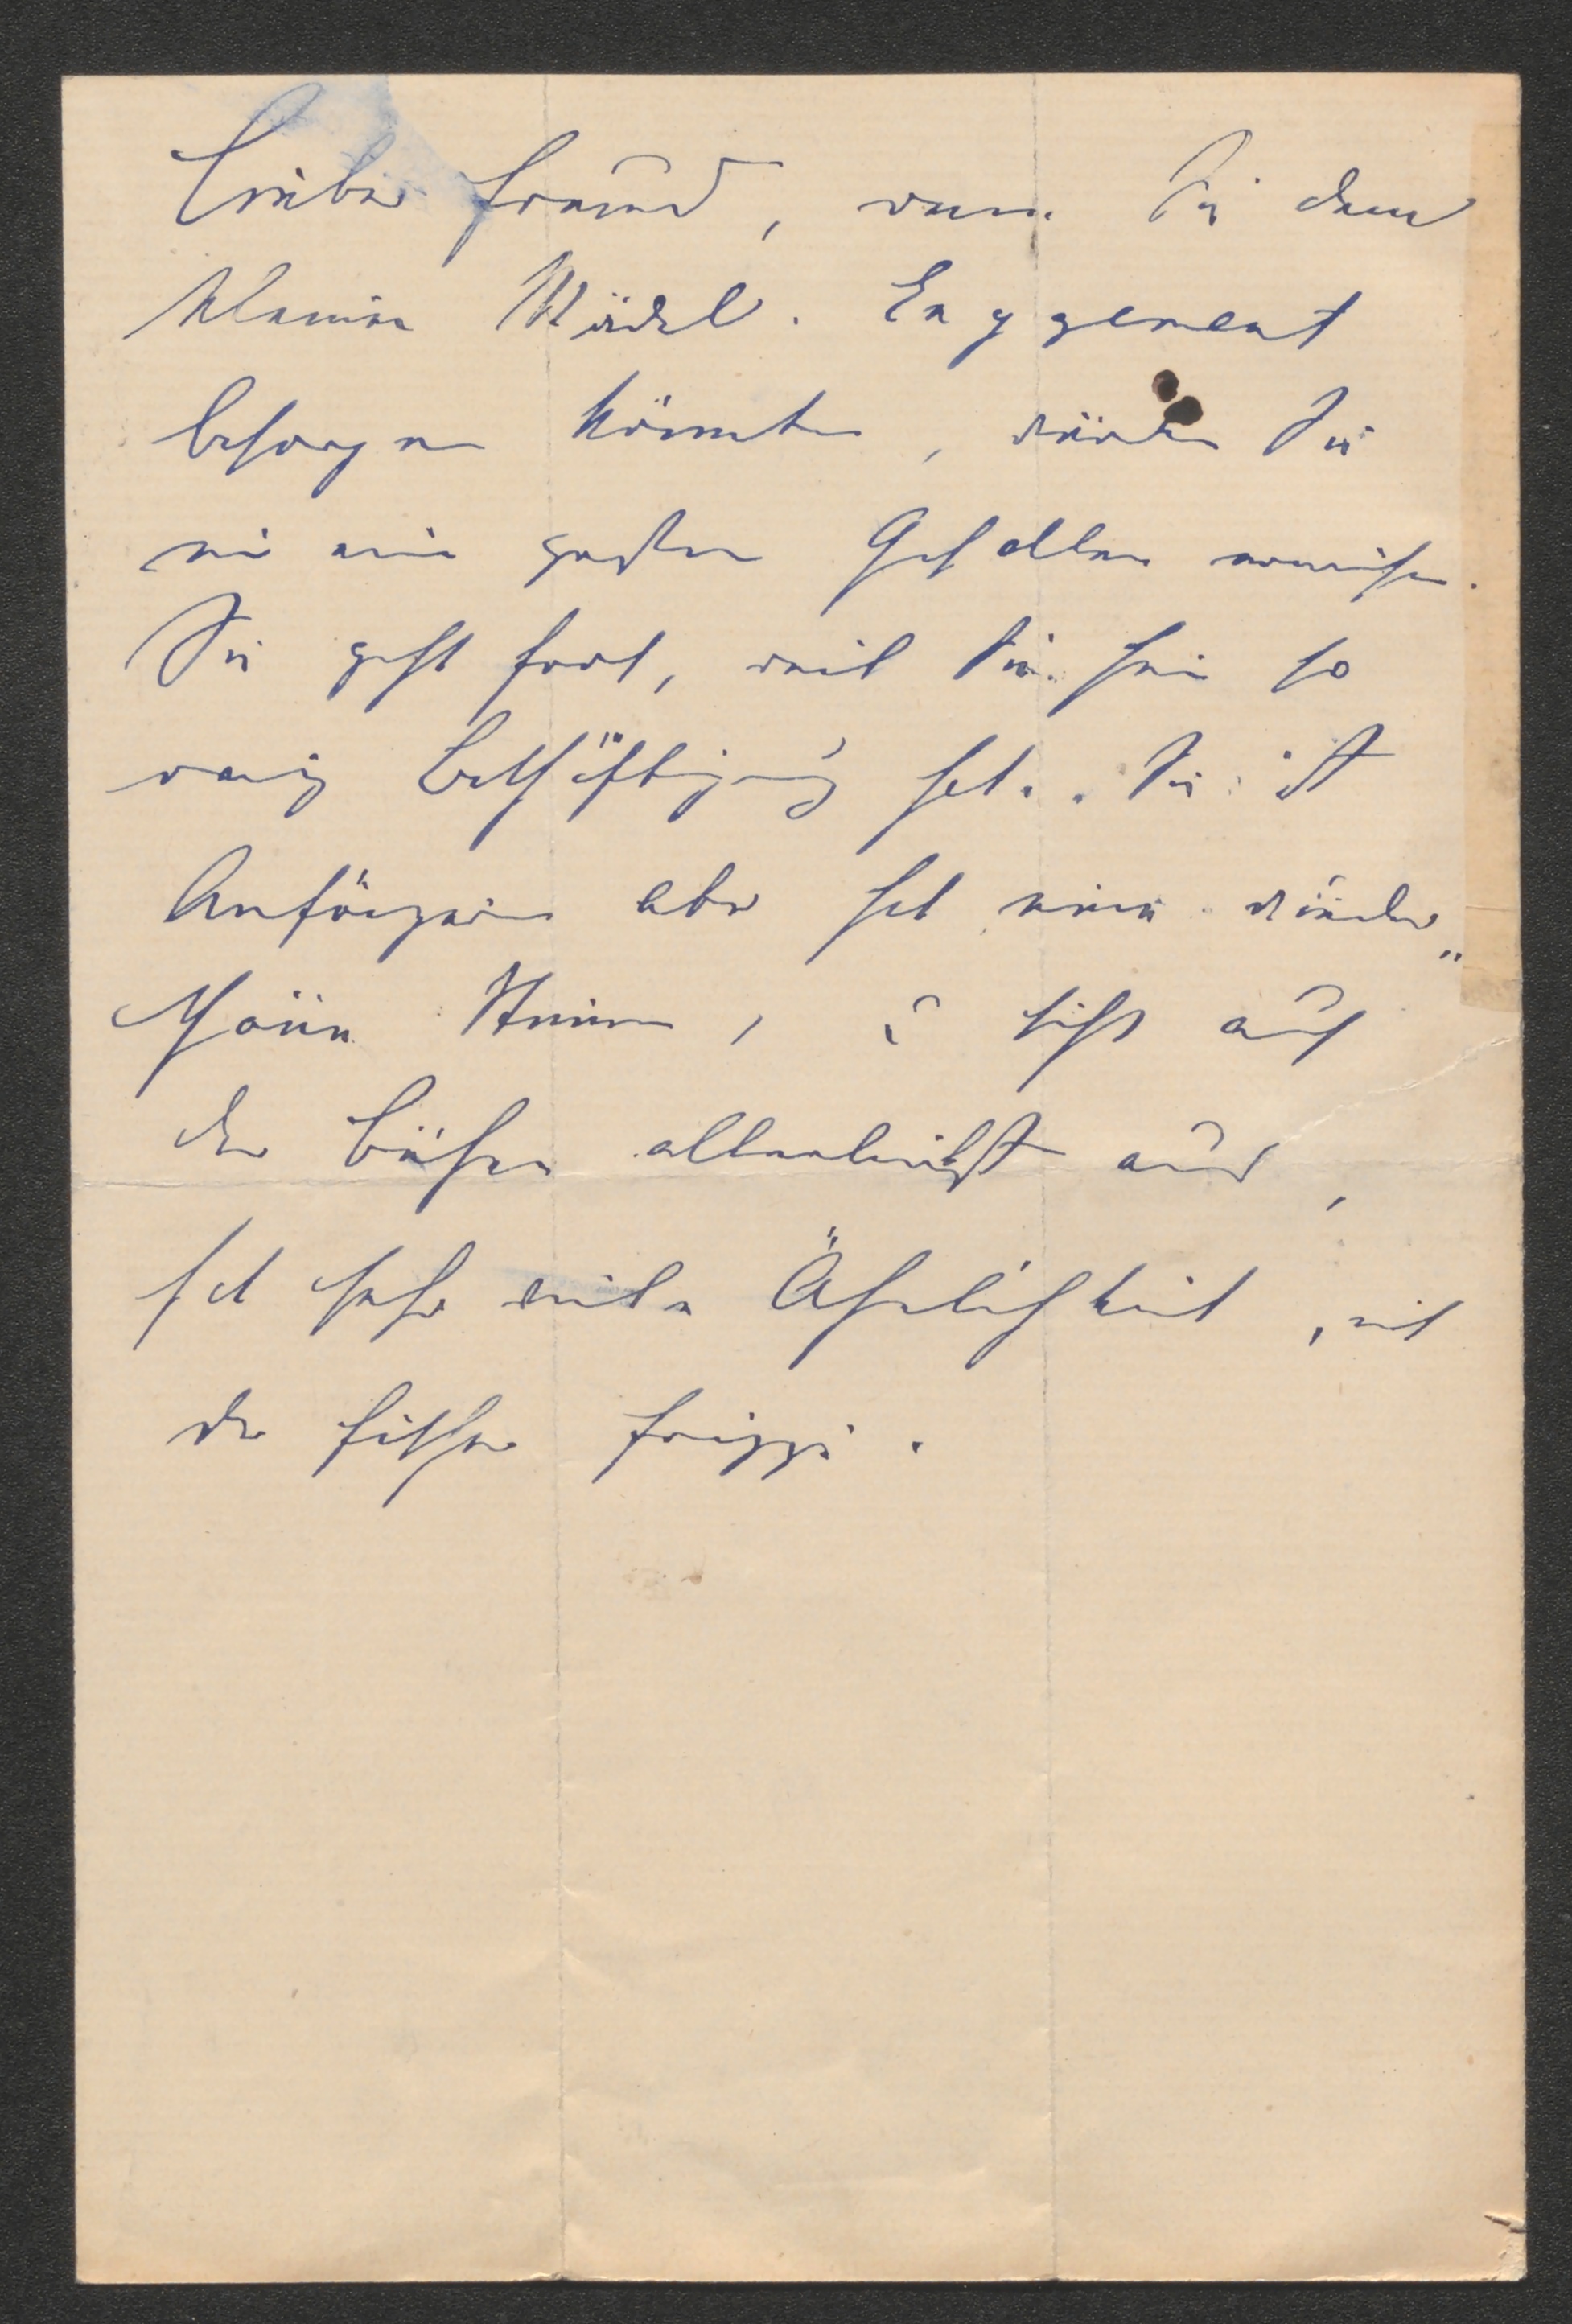 Lieber Freund, wenn Sie dem
kleinen Mädel Engagement
besorgen könnten, würden Sie
mir einen großen Gefallen erweisen.
Sie geht fort, weil sie hier so
wenig Beschäftigung hat. Sie ist
Anfängerin aber hat eine wunder„
schöne Stimme, u sieht auf
der Bühne allerliebst aus,
hat sehr viel Ähnlichkeit mit
der Fritzi.